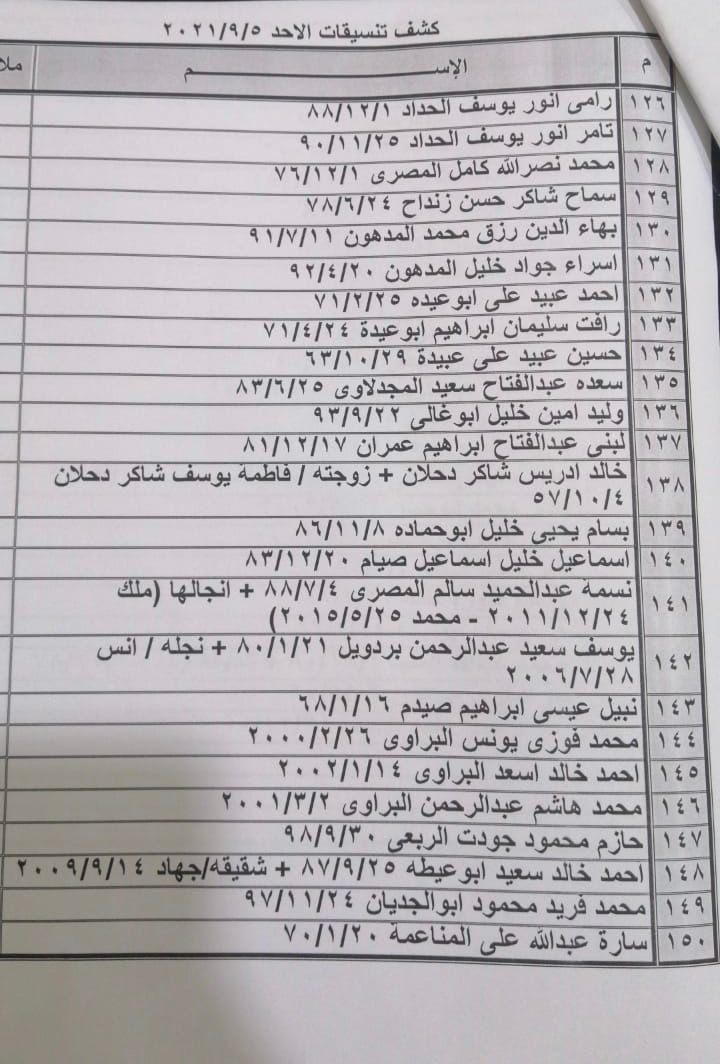 كشف تنسيقات الاحد ٢٠٢١/٩/٥
م الإســـــــــــــــــــــــم ملا
١٢٦ رامى انور يوسف الحداد ٨٨/١٢/١
١٢٧ تامر انور يوسف الحداد ٩٠/١١/٢٥
١٢٨ محمد نصرالله كامل المصرى ٧٦/١٢/١
١٢٩ سماح شاكر حسن زنداح ٧٨/٦/٢٤
١٣٠ بهاء الدين رزق محمد المدهون ٩١/٧/١١
١٣١ اسراء جواد خليل المدهون ٩٢/٤/٢٠
١٣٢ احمد عبيد على ابوعيده ٧١/٢/٢٥
١٣٣ رافت سليمان ابراهيم ابوعيدة ٧١/٤/٢٤
١٣٤ حسين عبيد على عبيدة ٦٣/١٠/٢٩
١٣٥ سعده عبدالفتاح سعيد المجدلاوى ٨٣/٦/٢٥
١٣٦ وليد امين خليل ابوغالى ٩٣/٩/٢٢
١٣٧ لبنى عبدالفتاح ابراهيم عمران ٨١/١٢/١٧
١٣٨ خالد ادريس شاكر دحلان + زوجته / فاطمة يوسف شاكر دحلان
٥٧/١٠/٤
١٣٩ بسام يحيى خليل ابوحماده ٨٦/١١/٨
١٤٠ اسماعيل خليل اسماعيل صيام ٨٣/١٢/٢٠
١٤١ نسمة عبدالحميد سالم المصرى ٨٨/٧/٤ + انجالها (ملك
٢٠١١/١٢/٢٤ - محمد ٢٠١٥/٥/٢٥)
١٤٢ يوسف سعيد عبدالرحمن بردويل ٨٠/١/٢١ + نجله / انس
٢٠٠٦/٧/٢٨
١٤٣ نبيل عيسى ابراهيم صيدم ٦٨/١/١٦
١٤٤ محمد فوزى يونس البراوى ٢٠٠٠/٢/٢٦
١٤٥ احمد خالد اسعد البراوى ٢٠٠٢/١/١٤
١٤٦ محمد هاشم عبدالرحمن البراوى ٢٠٠١/٣/٢
١٤٧ حازم محمود جودت الربعى ٩٨/٩/٣٠
١٤٨ احمد خالد سعيد ابوعيطه ٨٧/٩/٢٥ + شقيقه/جهاد ٢٠٠٩/٩/١٤
١٤٩ محمد فريد محمود ابوالجديان ٩٧/١١/٢٤
١٥٠ سارة عبدالله على المناعمة ٧٠/١/٢٠